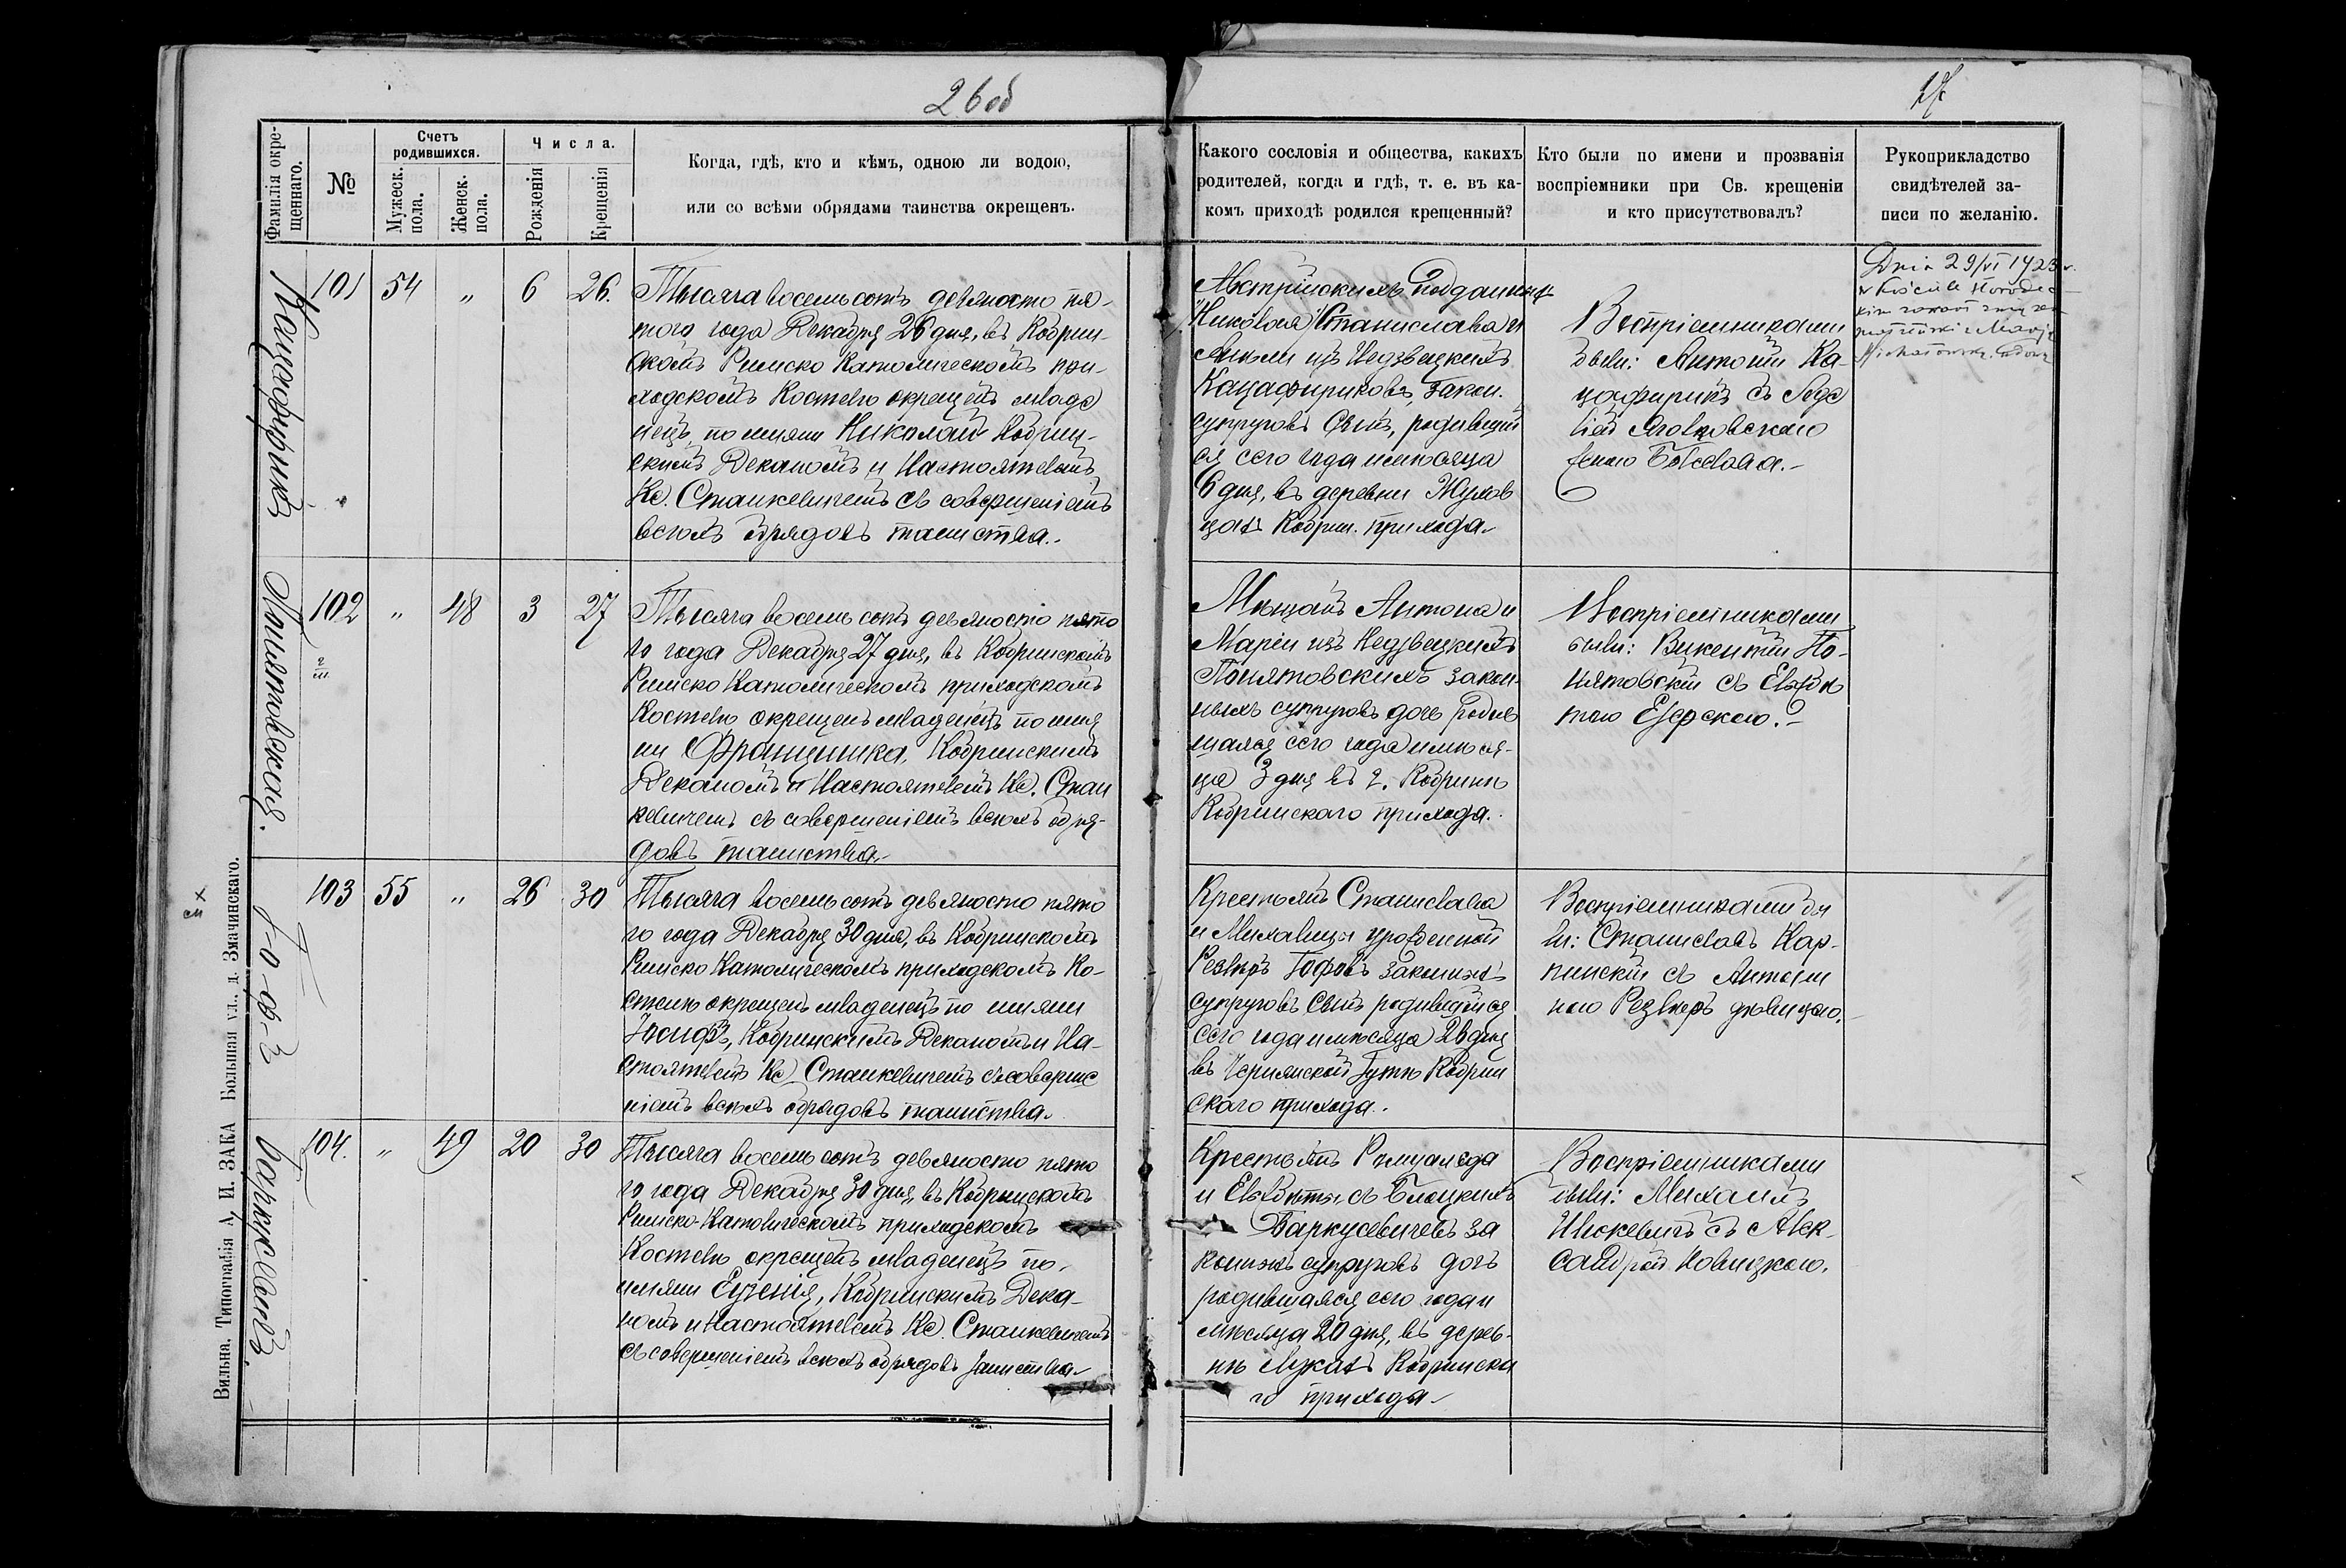 26об
27
Фамилія окре-
щеннаго.
№
Счетъ
родившихся.
Мужеск.
пола.
Женск.
пола.
Числа.
Рожденія
Крещенія
Когда, гдѣ, кто и кѣмъ, одною ли водою,
или со всѣми обрядами таинства окрещенъ.
Какого сословія и общества, какихъ
родителей, когда и гдѣ, т. е. въ ка-
комъ приходѣ родился крещенный?
Кто были по имени и прозванія
воспріемники при Св. крещеніи
и кто присутствовалъ?
Рукоприкладство
свидѣтелей за-
писи по желанію.
Кацафирикъ
101 54 „ 6 26.
Тысяча восемь сотъ девяносто пя-
того года Декабря 26 дня, въ Кобрин-
скомъ Римско Католическомъ при-
ходскомъ Костелѣ окрещенъ младе
нецъ, по имени Николай Кобрин-
скимъ Деканомъ и Настоятелемъ
Кс. Станкевичемъ съ совершеніемъ
всѣхъ обрядовъ таинства.-
Австрійскихъ подданныхъ
Николая Станислава и
Анели изъ Недзвецкихъ
Кацафириковъ, закон.
супруговъ сынъ, родившій
ся сего года и мѣсяца
6 дня, въ деревни Жухов
цахъ Кобрин. прихода.
Воспріемниками
были: Антоній Ка-
цафирикъ съ
Яговковскаго
женою
Dnia 29/VI 1923 r.
w kościele
kim zawarł zwią zek
małżeński z Marją
Понятовская.
102 „ 48 3 27
Тысяча восемь сотъ девяносто пято
го года Декабря 27 дня, въ Кобринскомъ
Римско Католическомъ приходскомъ
Костелѣ окрещенъ младенецъ по име
ни Францишка, Кобринскимъ
Деканомъ и Настоятелемъ Кс. Стан
кевичемъ съ совершеніемъ всѣхъ обря-
довъ таинства.
Мѣщанъ Антона и
Маріи изъ Недзвецкихъ
Понятовскихъ закон-
ныхъ супруговъ дочь родив
шаяся сего года и мѣся-
ца 3 дня въ г. Кобринѣ
Кобринскаго прихода.
Воспріемниками
были: Викентій По-
нятовскій съ Елзбѣ
тою Езерскою.
Гофъ
103 55 „ 26 30
Тысяча восемь сотъ девяносто пято
го года Декабря 30 дня, въ Кобринскомъ
Римско Католическомъ приходскомъ Ко-
стелѣ окрещенъ младенецъ по имени
Іосифъ, Кобринскимъ Деканомъ и На-
стоятелемъ Кс. Станкевичемъ съ соверше
ніемъ всѣхъ обрядовъ таинства.
Крестьянъ Станислава
и Михалины урожденной
Резлеръ Гофовъ законныхъ
супруговъ сынъ родившійся
сего года и мѣсяца 26 дня
въ Чернянской Гутѣ Кобрин
скаго прихода.
Воспріемниками бы
ли: Станиславъ Кар-
пинскій съ Антони
ною Резлеръ дѣвицею.
Баркусевичъ
104. „ 49 20 30
Тысяча восемь сотъ девяносто пято
го года Декабря 30 дня, въ Кобринскомъ
Римско-Католическомъ приходскомъ
Костелѣ окрещенъ младенецъ по
имени Евгенія, Кобринскимъ Дека-
номъ и Настоятелемъ Кс. Станкевичемъ
съ совершеніемъ всѣхъ обрядовъ таинства.
Крестьянъ Ромуальда
и Елзбѣты съ Блоцкихъ
Баркусевичевъ за
конныхъ супруговъ дочь
родившаяся сего года и
мѣсяца 20 дня, въ дерев-
нѣ Лукахъ Кобринска
го прихода
Воспріемниками
были: Михаилъ
съ Алек-
сандрой Новицкою.
Вильна. Типографія А. И. ЗАКА Большая ул., д. Змачинскаго.